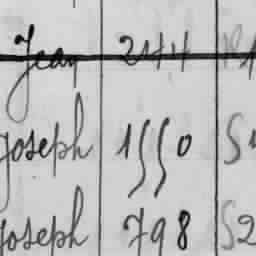 Jean 244
Joseph 1550
Joseph 798 52